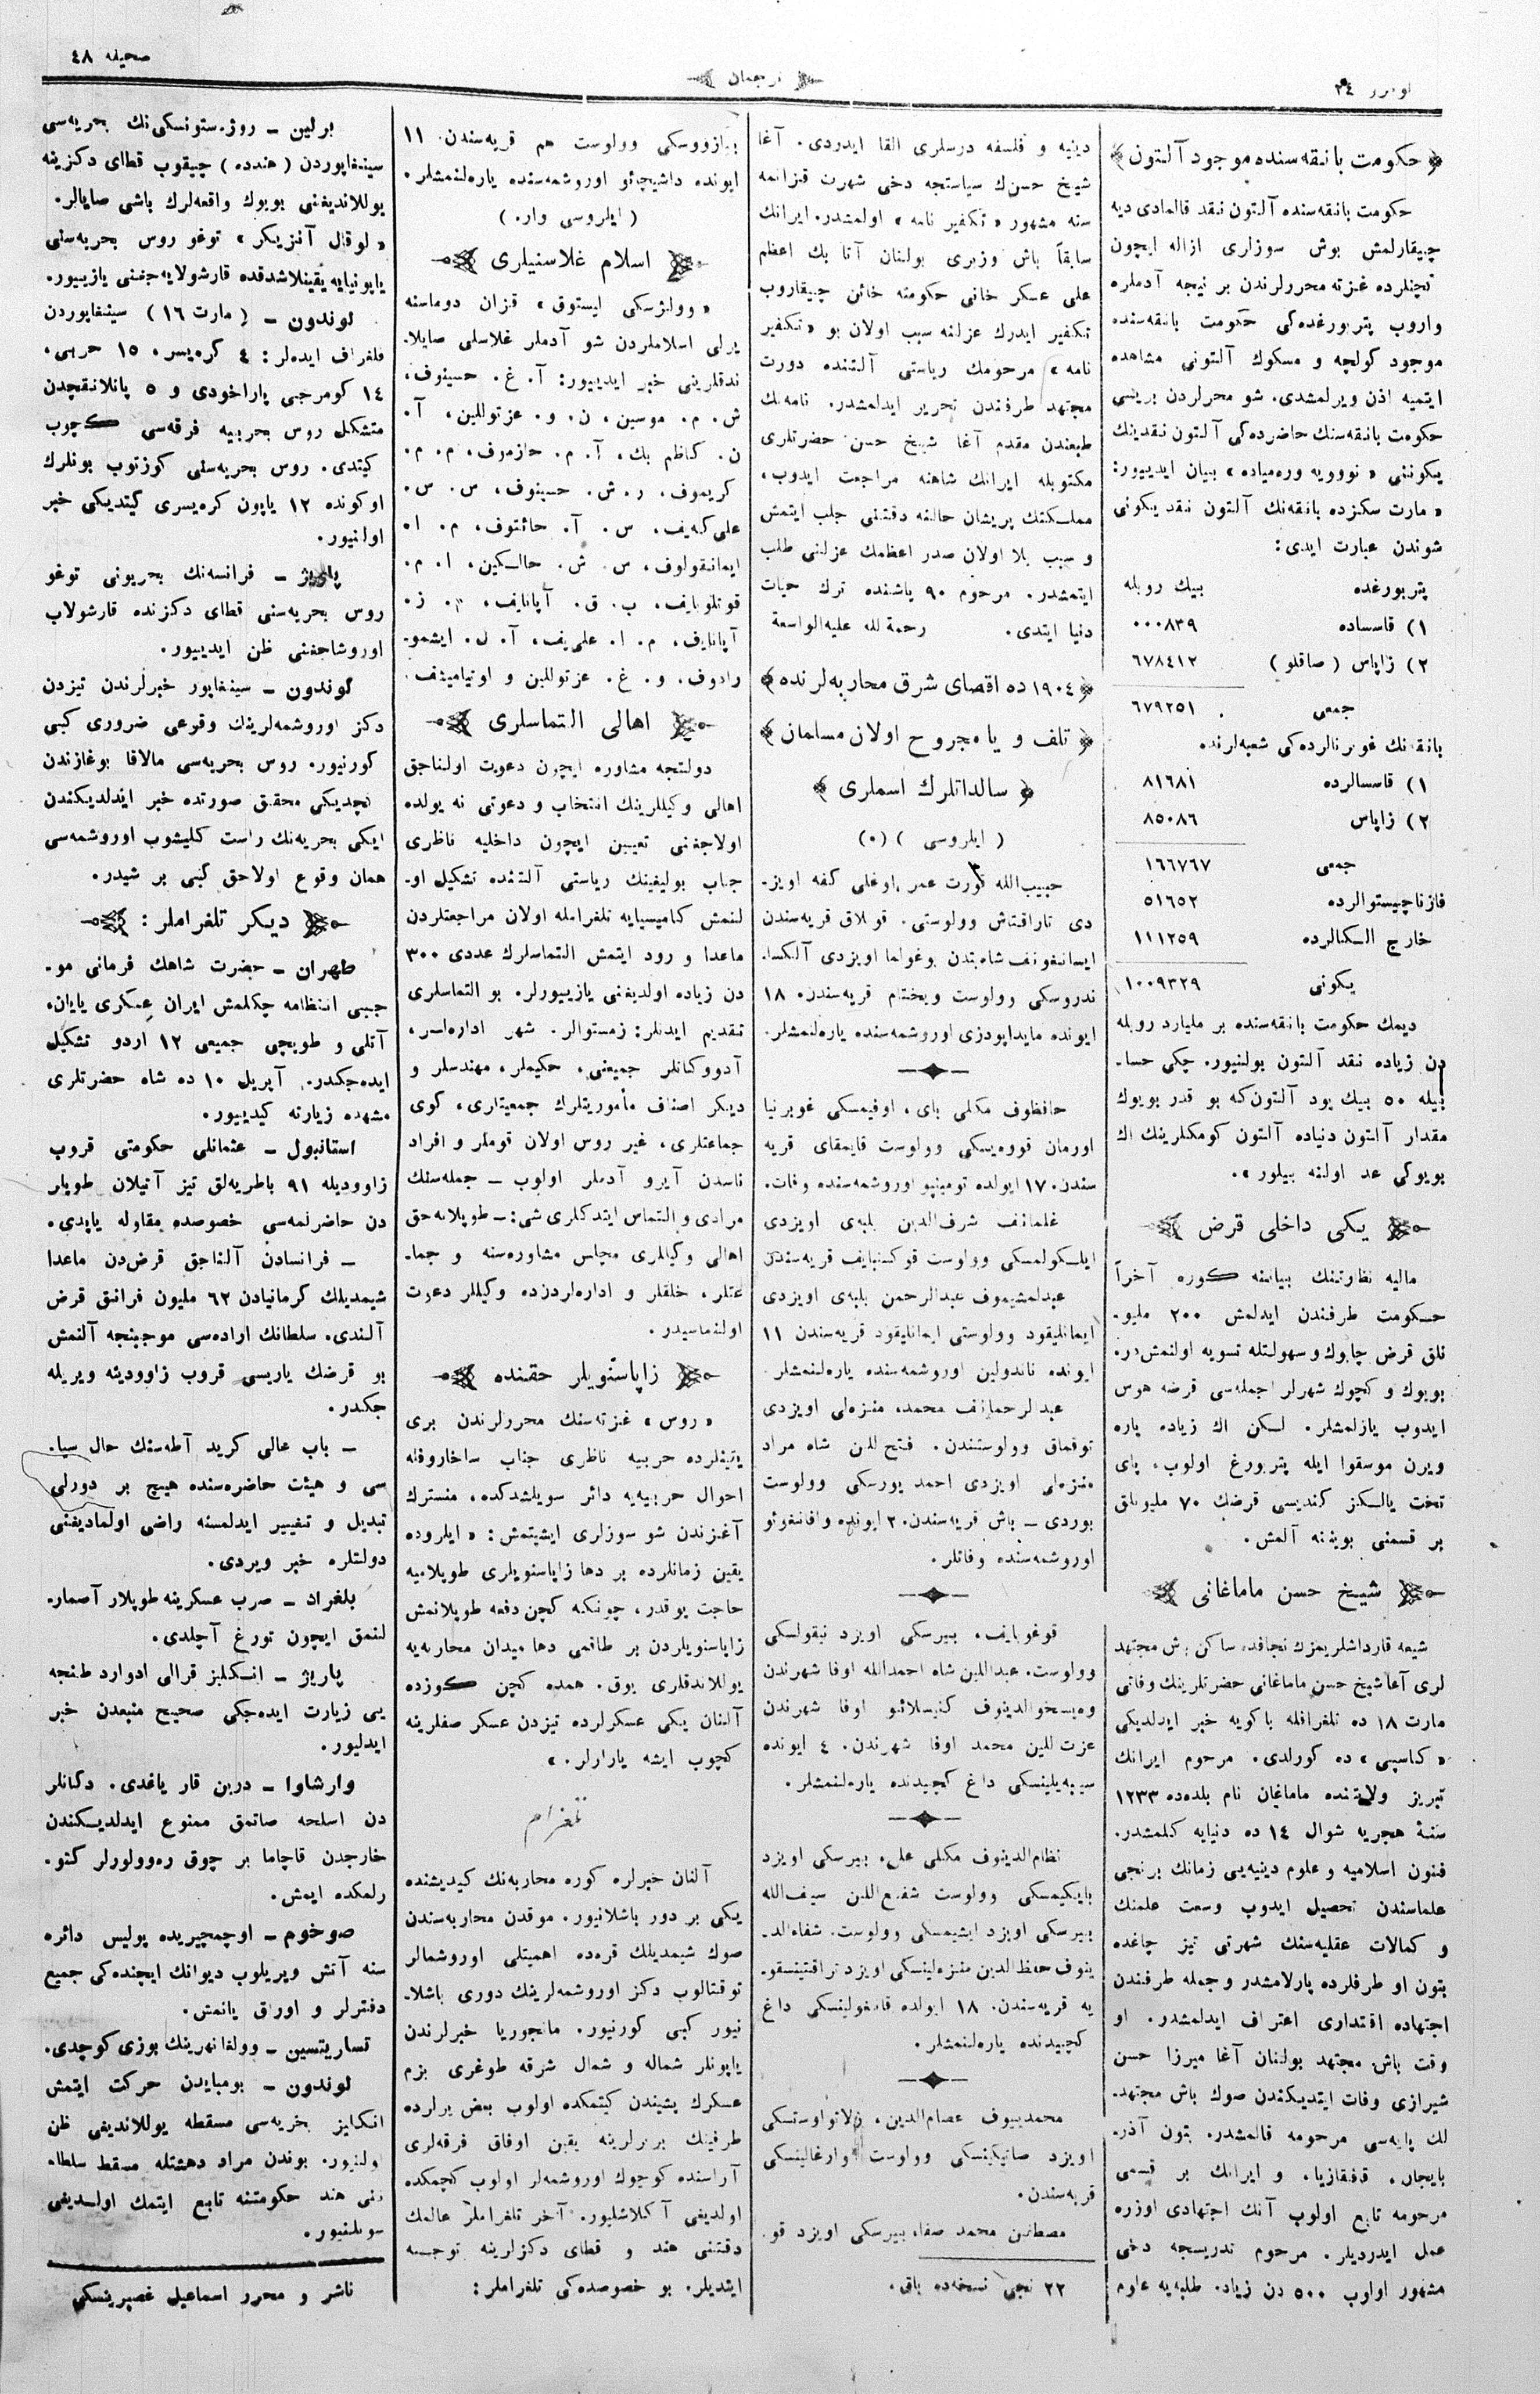 نومرو ٢٤
ترجمان
صحیفه ٤٨
حکومت بانقه‌سنده موجود آلتون
حکومت بانقه‌سنده آلتون نقد قالمادی دیه
چیقارلمش بوش سوزلری ازاله ایچون
کچنلرده غزته محررلرندن بر نیجه آدملره
واروب پتربورغده‌کی حکومت بانقه‌سنده
موجود کولچه و مسکوك آلتونی مشاهده
ایتمیه اذن ویرلمشدی. شو محررلردن بریسی
حکومت بانقه‌سنك حاضرده‌کی آلتون نقدینك
یکوننی « نوویه وره‌میاده » بیان ایدییور:
« مارت سکزده بانقه‌نك آلتون نقد یکونی
شوندن عبارت ایدی:
پتربورغده بیك روبله
١) قاسساده ٠٠٠٨٣٩
٢) زاپاس ( صاقلو ) ٦٧٨٤١٢
جمعی ٦٧٩٢٥١
بانقه‌نك غوبرنالرده‌کی شعبه‌لرنده
١) قاسسالرده ٨١٦٨١
٢) زاپاس ٨٥٠٨٦
جمعی ١٦٦٧٦٧
قازناچیستوالرده ٥١٦٥٢
خارج الکالرده ١١١٢٥٩
یکونی ١٠٠٩٣٢٩
دیمك حکومت بانقه‌سنده بر ملیارد روبله
دن زیاده نقد آلتون بولنیور. چکی حسا-
بیله ٥٠ بیك پود آلتون‌که بو قدر بویوك
مقدار آلتون دنیاده آلتون کومکلرینك اك
بویوکی عد اولنه بیلور ».
یکی داخلی قرض
مالیه نظارتنك بیاننه کوره آخراً
حکومت طرفندن ایدلمش ٢٠٠ ملیو-
نلق قرض چابوك و سهولتله تسویه اولنمش‌در.
بویوك و کچوك شهرلر اجمله‌سی قرضه هوس
ایدوب یازلمشلر. لکن اك زیاده پاره
ویرن موسقوا ایله پتربورغ اولوب، پای
تخت یالکز کندیسی قرضك ٧٠ ملیونلق
بر قسمنی بوینه آلمش.
شیخ حسن ماماغانی
شیعه قارداشلریمزك نجافده ساکن باش مجتهد
لری آغا شیخ حسن ماماغانی حضرتلرینك وفاتی
مارت ١٨ ده تلغرافله باکویه خبر ایدلدیکی
« کاسپی » ده کورلدی. مرحوم ایرانك
تبریز ولایتنده ماماغان نام بلده‌ده ١٢٣٣
سنهٔ هجریه شوال ١٤ ده دنیایه کلمشدر.
فنون اسلامیه و علوم دینیه‌یی زمانك برنجی
علماسندن تحصیل ایدوب وسعت علمنك
و کمالات عقلیه‌سنك شهرتی تیز چاغده
بتون او طرفلرده پارلامشدر و جمله طرفندن
اجتهاده اقتداری اعتراف ایدلمشدر. او
وقت باش مجتهد بولنان آغا میرزا حسن
شیرازی وفات ایتدیکندن صوك باش مجتهد-
لك پایه‌سی مرحومه قالمشدر. بتون آذر-
بایجان، قافقازیا، و ایرانك بر قسمی
مرحومه تابع اولوب آنك اجتهادی اوزره
عمل ایدردیلر. مرحوم تدریسجه دخی
مشهور اولوب ٥٠٠ دن زیاده طلبه‌یه علوم
دینیه و فلسفه درسلری القا ایدردی. آغا
شیخ حسن‌ك سیاستجه دخی شهرت قزانمه
سنه مشهور « تکفیر نامه » اولمشدر. ایرانك
سابقاً باش وزیری بولنان آتا بك اعظم
علی عسکر خانی حکومته خائن چیقاروب
تکفیر ایدرك عزلنه سبب اولان بو « تکفیر
نامه » مرحومك ریاستی آلتنده دورت
مجتهد طرفندن تحریر ایدلمشدر. نامه‌نك
طبعندن مقدم آغا شیخ حسن حضرتلری
مکتوبله ایرانك شاهنه مراجعت ایدوب،
مملکتك پریشان حالنه دقتنی جلب ایتمش
و سبب بلا اولان صدر اعظمك عزلنی طلب
ایتمشدر. مرحوم ٩٠ یاشنده ترك حیات
دنیا ایتدی. رحمة لله علیه الواسعة
١٩٠٤ ده اقصای شرق محاربه‌لرنده
تلف و یا مجروح اولان مسلمان
سالداتلرك اسملری
( ایلروسی ) (٥)
حبیب‌الله کورت عمر اوغلی کفه اویز-
دی تاراقتاش وولوستی. قولاق قریه‌سندن
ندروسکی وولوست ویختام قریه‌سندن. ١٨
ایونده مایداپودزی اوروشمه‌سنده یاره‌لنمشلر.
حافظوف مکلی بای، اوفیمسکی غوبرنیا
سندن. ١٧ ایولده تومینپو اوروشمه‌سنده وفات.
غلمانف شرف‌الدین بلبه‌ی اویزدی
عبدلمشیموف عبدالرحمن بلبه‌ی اویزدی
ایمانلیقود وولوستی ایمانلیقود قریه‌سندن ١١
ایونده ناندولین اوروشمه‌سنده یاره‌لنمشلر.
عبدالرحمانف محمد، منزه‌لی اویزدی
توقماق وولوستندن. فتح‌اللن شاه مراد
منزه‌لی اویزدی احمد یورسکی وولوست
بوردی – باش قریه‌سندن. ٢ ایونده وافانغوئو
اوروشمه‌سنده وفاتلر.
قوغوبایف، بیرسکی اویزد نیقولسکی
وولوست. عبداللین شاه احمدالله اوفا شهرندن
عزت‌اللین محمد اوفا شهرندن. ٤ ایونده
سیبه‌یلینسکی داغ کچیدنده یاره‌لنمشلر.
نظام‌الدینوف مکلی علی، بیرسکی اویزد
بایکیمسکی وولوست شفیع‌اللین سیف‌الله
بیرسکی اویزد ایشیمسکی وولوست. شفاءالد-
یه قریه‌سندن. ١٨ ایولده قانغولینسکی داغ
کچیدنده یاره‌لنمشلر.
محمدییوف عصام‌الدین، زلاتواوستسکی
قریه‌سندن.
مصطفین محمد صفا، بیرسکی اویزد قو.
٢٢ نجی نسخه‌ده باق.
بیازووسکی وولوست هم قریه‌سندن. ١١
ایونده داشیچئو اوروشمه‌سنده یاره‌لنمشلر.
( ایلروسی وار. )
اسلام غلاسنیلری
« وولژسکی لیستوق » قزان دوماسنه
یرلی اسلاملردن شو آدملر غلاسلی صایلا-
ندقلرینی خبر ایدییور: آ. غ. حسینوف،
ش. م. موسین، ن. و. عزتوللین، آ.
ن. کاظم بك، آ. م. حازموف، م. م.
کریموف، ر. ش. حسینوف، س. س.
علی‌کیف، س. آ. حائتوف، م. ا.
ایمانقولوف، س. ش. حالکین، ا. م.
قوتلوبایف، ب. ق. آپانایف، م. ز.
آپانایف، م. ا. علی‌یف، آ. ل. ایشمو-
رادوف، و. غ. عزتوللین و اوتیامیشف.
اهالی التماسلری
دولتجه مشاوره ایچون دعوت اولناجق
اهالی وکیللرینك انتخاب و دعوتی نه یولده
اولاجغنی تعیین ایچون داخلیه ناظری
جناب بولیغینك ریاستی آلتنده تشکیل او-
لنمش کامیسیایه تلغرامله اولان مراجعتلردن
ماعدا و رود ایتمش التماسلرك عددی ٣٠٠
دن زیاده اولدیغنی یازییورلر. بو التماسلری
تقدیم ایدنلر: زمستوالر. شهر اداره‌لری،
آدووکاتلر جمیعتی، حکیملر، مهندسلر و
دیکر اصناف مأموریتلرك جمعیتلری، کوی
جماعتلری، غیر روس اولان قوملر و افراد
ناسدن آیرو آدملر اولوب – جمله‌سنك
مرادی و التماس ایتدکلری شی: – طوپلانه‌جق
اهالی وکیللری مجلس مشاوره‌سنه و جما-
عتلر، خلقلر و اداره‌لردن‌ده وکیللر دعوت
اولنماسیدر.
زاپاسنویلر حقنده
« روس » غزته‌سنك محررلرندن بری
یقینلرده حربیه ناظری جناب ساخاروفله
احوال حربیه‌یه دائر سویلشدکده، منسترك
آغزندن شو سوزلری ایشیتمش: « ایلروده
یقین زمانلرده بر دها زاپاسنویلری طوپلامیه
حاجت یوقدر، چونکه کچن دفعه طوپلانمش
زاپاسنویلردن بر طاقمی دها میدان محاربه‌یه
یوللاندقلری یوق. همده کچن کوزده
آلنان یکی عسکرلرده تیزدن عسکر صفلرینه
کچوب ایشه یارارلر. »
تلغرام
آلنان خبرلره کوره محاربه‌نك کیدیشنده
یکی بر دور باشلانیور. موقدن محاربه‌سندن
صوك شیمدیلك قره‌ده اهمیتلی اوروشمالر
توقتالوب دکز اوروشمه‌لرینك دوری باشلا-
نیور کبی کورنیور. مانجوریا خبرلرندن
یاپونلر شماله و شمال شرقه طوغری بزم
عسکرك پشیندن کیتمکده اولوب بعض یرلرده
طرفینك بربرلرینه یقین اوفاق فرقه‌لری
آراسنده کوچوك اوروشمه‌لر اولوب کچمکده
اولدیغی آکلاشلیور. آخر تلغراملر عالمك
دقتنی هند و قطای دکزلرینه توجیه
ایتدیلر. بو خصوصده‌کی تلغراملر:
برلین – روژه‌ستونسکی‌نك بحریه‌سی
سینغاپوردن ( هندده ) چیقوب قطای دکزینه
یوللاندیغنی بویوك واقعه‌لرك باشی صایالر.
« لوقال آنزیکر » توغو روس بحریه‌سنی
یاپونیایه یقینلاشدقده قارشولایه‌جغنی یازییور.
لوندون – ( مارت ١٦ ) سینغاپوردن
تلغراف ایده‌لر: ٤ کره‌یسر، ١٥ حربی،
١٤ کومرجی پاراخودی و ٥ پانلانقچدن
متشکل روس بحریه فرقه‌سی کچوب
کیتدی. روس بحریه‌سنی کوزتوب بونلرك
اوکونده ١٢ یاپون کره‌یسری کیتدیکی خبر
اولنیور.
پاریژ – فرانسه‌نك بحریونی توغو
روس بحریه‌سنی قطای دکزنده قارشولاب
اوروشاجغنی ظن ایدییور.
لوندون – سینغاپور خبرلرندن تیزدن
دکز اوروشمه‌لرینك وقوعی ضروری کبی
کورنیور. روس بحریه‌سی مالاقا بوغازندن
کچدیکی محقق صورتده خبر ایدلدیکندن
ایکی بحریه‌نك راست کلیشوب اوروشمه‌سی
همان وقوع اولاجق کبی بر شیدر.
دیکر تلغراملر:
طهران – حضرت شاهك فرمانی مو-
جبی انتظامه چکلمش ایران عسکری یایان،
آتلی و طوپچی جمیعی ١٢ اردو تشکیل
ایده‌جکدر. آپریل ١٠ ده شاه حضرتلری
مشهده زیارته کیدییور.
استانبول – عثمانلی حکومتی قروپ
زاوودیله ٩١ باطریه‌لق تیز آتیلان طوپلر
دن حاضرلمه‌سی خصوصده مقاوله یاپدی.
– فرانسادن آلناجق قرض‌دن ماعدا
شیمدیلك کرمانیادن ٦٢ ملیون فرانق قرض
آلندی. سلطانك اراده‌سی موجبنجه آلنمش
بو قرضك یاریسی قروپ زاوودینه ویریله
جکدر.
– باب عالی کرید آطه‌سنك حال سیا-
سی و هیئت حاضره‌سنده هیچ بر دورلی
تبدیل و تغییر ایدلمسنه راضی اولمادیغنی
دولتلره خبر ویردی.
بلغراد – صرب عسکرینه طوپلار آصمار-
لنمق ایچون تورغ آچلدی.
پاریژ – انکلیز قرالی ادوارد طنجه
یی زیارت ایده‌جکی صحیح منبعدن خبر
ایدلیور.
وارشاوا – درین قار یاغدی. دکانلر
دن اسلحه صاتمق ممنوع ایدلدیکندن
خارجدن قاچاما بر چوق ره‌وولورلر کتو-
رلمکده ایمش.
صوخوم – اوچمچیریده پولیس دائره
سنه آتش ویریلوب دیوانك ایچنده‌کی جمیع
دفترلر و اوراق یانمش.
تساریتسین – وولغا نهرینك بوزی کوچدی.
لوندون – بومبایدن حرکت ایتمش
انکلیز بحریه‌سی مسقطه یوللاندیغی ظن
اولنیور. بوندن مراد دهشتله مسقط سلطا-
ننی هند حکومتنه تابع ایتمك اولدیغی
سویلنیور.
ناشر و محرر اسماعیل غصپرینسکی